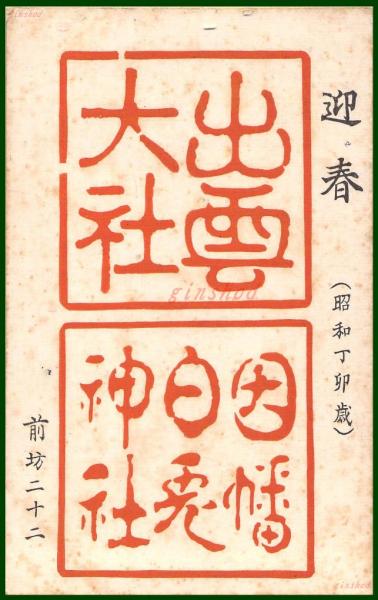 迎春
(昭和丁卯歳)
出雲
大社
因幡
白兎
神社
前坊二十二
ginshod
ginshod
ginshod